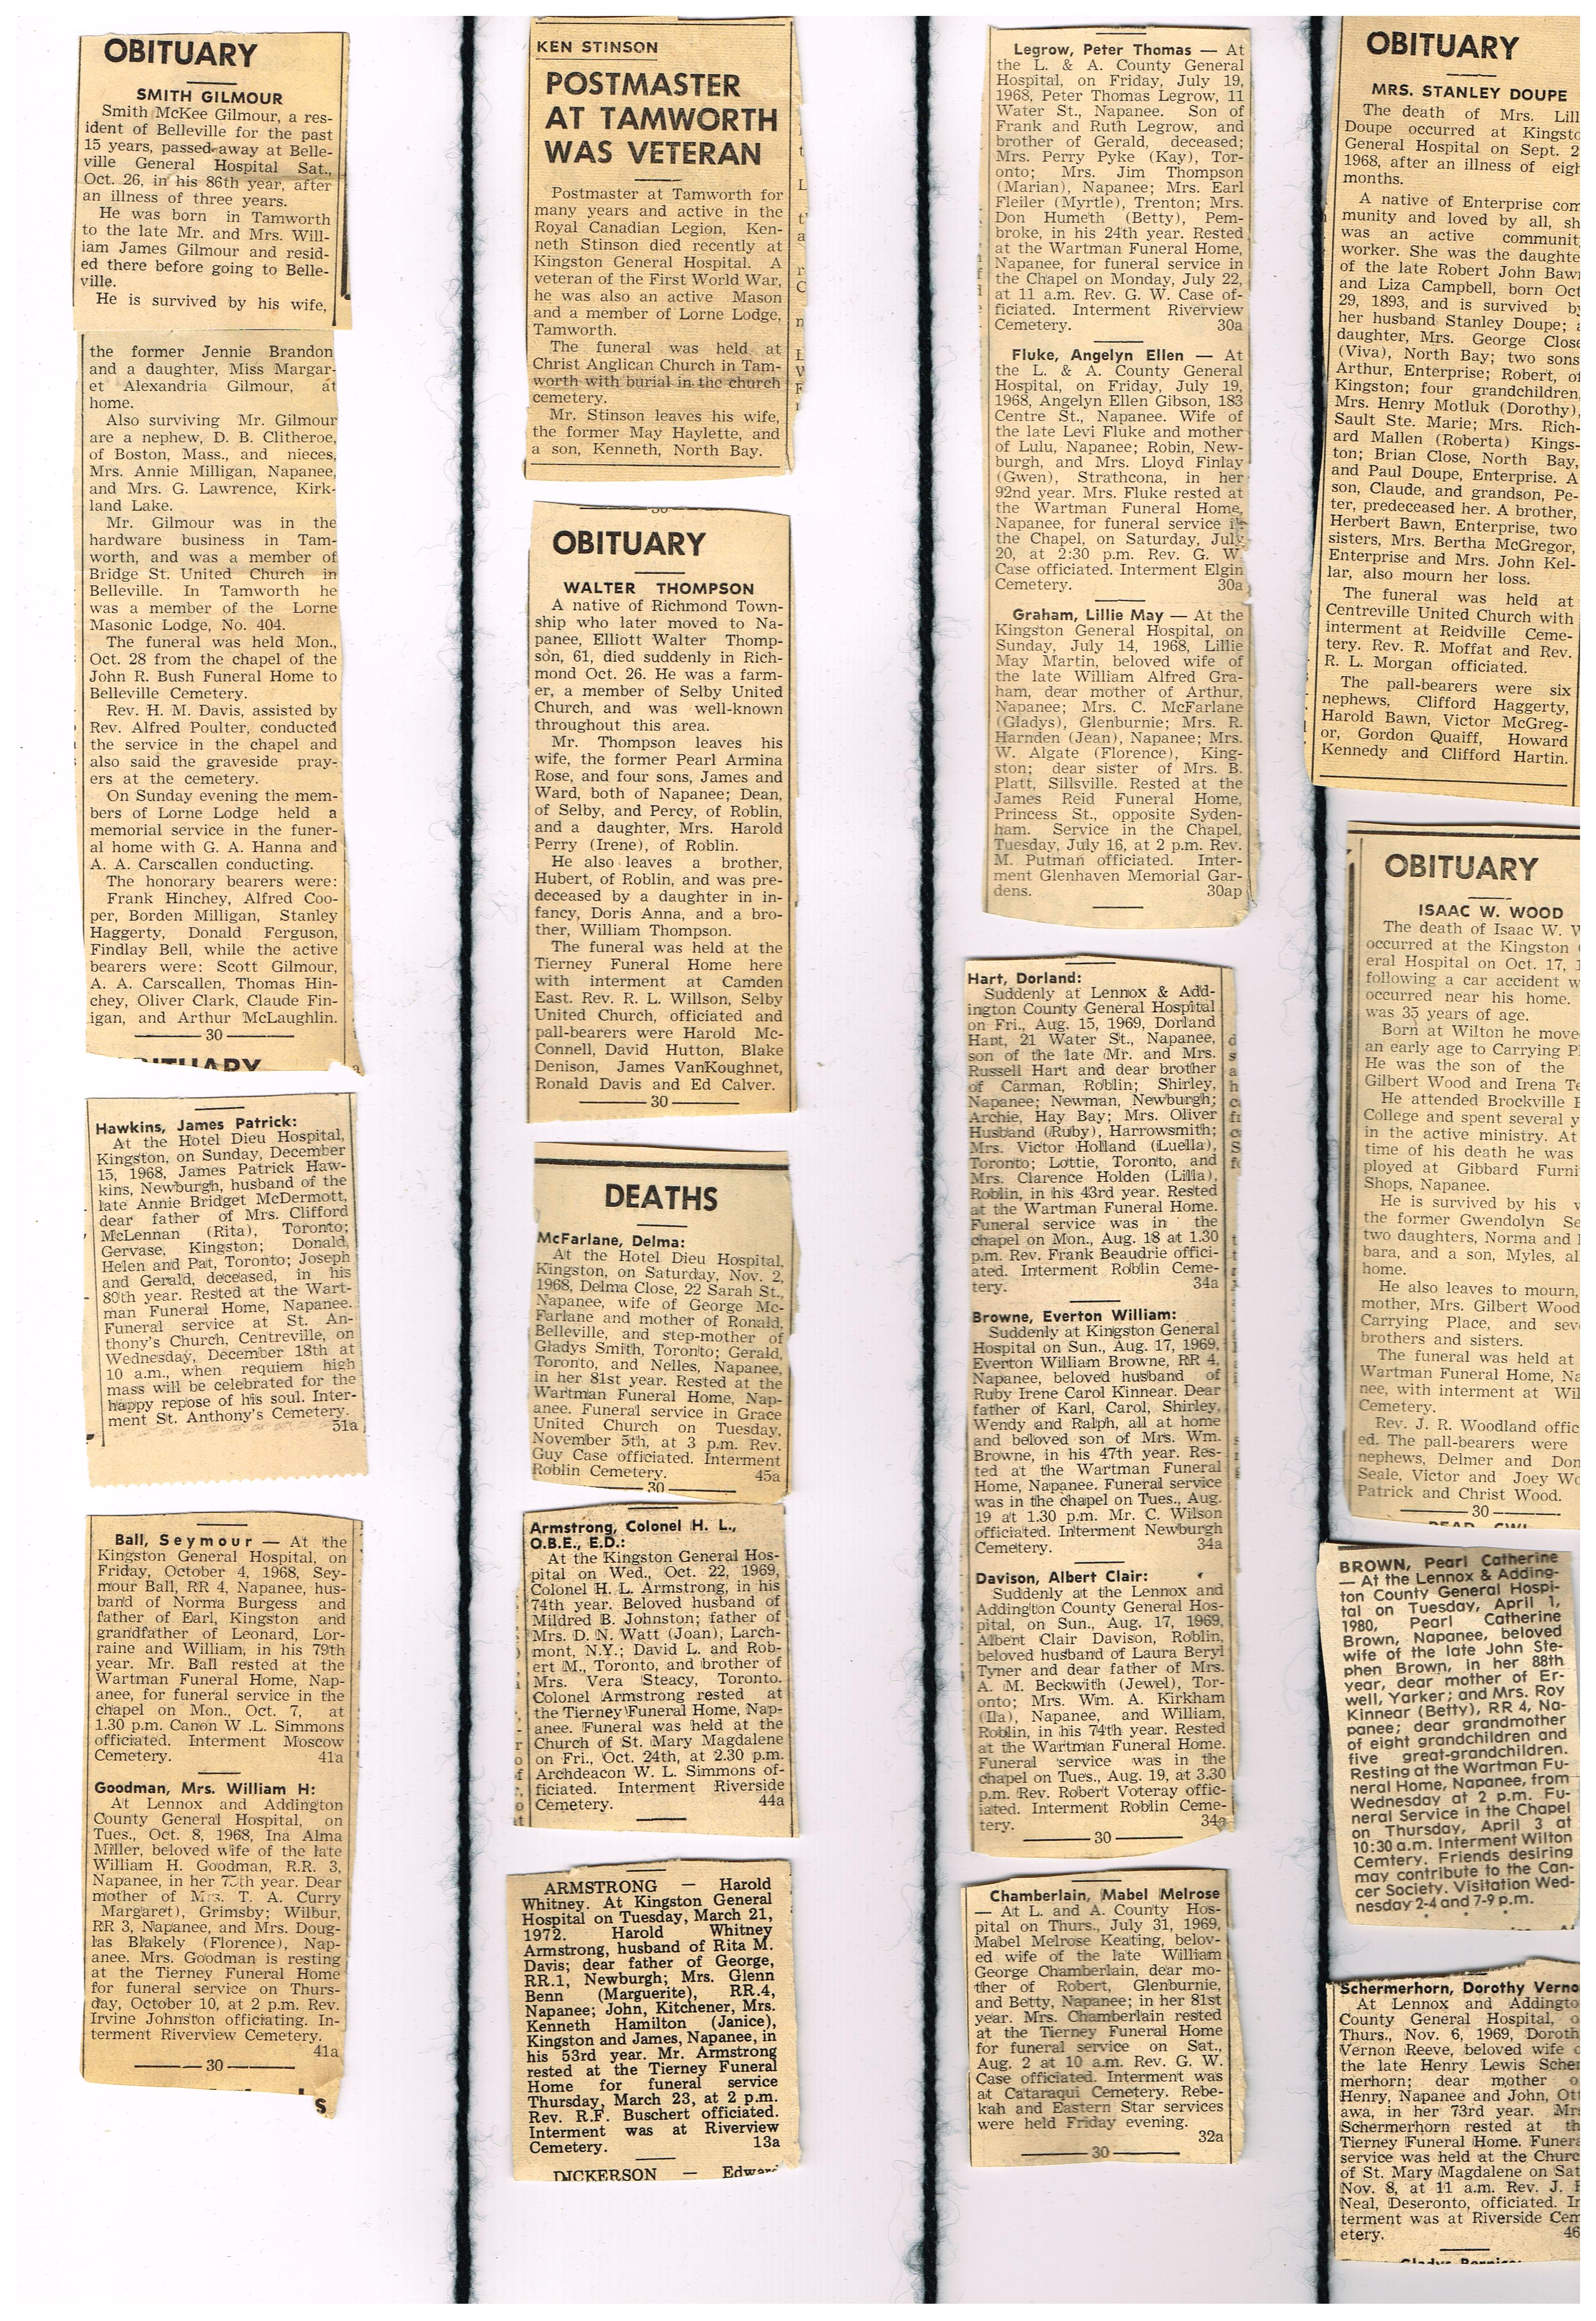 OBITUARY
SMITH GILMOUR
Smith McKee Gilmour, a res-
ident of Belleville for the past
15 years, passed away at Belle-
ville General Hospital Sat.,
Oct. 26, in his 86th year, after
an illness of three years.
He was born in Tamworth
to the late Mr. and Mrs. Will-
iam James Gilmour and resid-
ed there before going to Belle-
ville.
He is survived by his wife,
the former Jennie Brandon
and a daughter, Miss Margar-
et Alexandria Gilmour, at
home.
Also surviving Mr. Gilmour
are a nephew, D. B. Clitheroe,
of Boston, Mass., and nieces,
Mrs. Annie Milligan, Napanee,
and Mrs. G. Lawrence, Kirk-
land Lake.
Mr. Gilmour was in the
hardware business in Tam-
worth, and was a member of
Bridge St. United Church in
Belleville. In Tamworth he
was a member of the Lorne
Masonic Lodge, No. 404.
The funeral was held Mon.,
Oct. 28 from the chapel of the
John R. Bush Funeral Home to
Belleville Cemetery.
Rev. H. M. Davis, assisted by
Rev. Alfred Poulter, conducted
the service in the chapel and
also said the graveside pray-
ers at the cemetery.
On Sunday evening the mem-
bers of Lorne Lodge held a
memorial service in the funer-
al home with G. A. Hanna and
A. A. Carscallen conducting.
The honorary bearers were:
Frank Hinchey, Alfred Coo-
per, Borden Milligan, Stanley
Haggerty, Donald Ferguson,
Findlay Bell, while the active
bearers were: Scott Gilmour,
A. A. Carscallen, Thomas Hin-
chey, Oliver Clark, Claude Fin-
igan, and Arthur McLaughlin.
30
Hawkins, James Patrick:
At the Hotel Dieu Hospital,
Kingston, on Sunday, December
15, 1968, James Patrick Haw-
kins, Newburgh, husband of the
late Annie Bridget McDermott,
dear father of Mrs. Clifford
McLennan (Rita), Toronto;
Gervase, Kingston; Donald,
Helen and Pat, Toronto; Joseph
and Gerald, deceased, in his
80th year. Rested at the Wart-
man Funeral Home, Napanee.
Funeral service at St. An-
thony's Church, Centreville, on
Wednesday, December 18th at
10 a.m., when requiem high
mass will be celebrated for the
happy repose of his soul. Inter-
ment St. Anthony's Cemetery.
51a
Ball, Seymour — At the
Kingston General Hospital, on
Friday, October 4, 1968, Sey-
mour Ball, RR 4, Napanee, hus-
band of Norma Burgess and
father of Earl, Kingston and
grandfather of Leonard, Lor-
raine and William, in his 79th
year. Mr. Ball rested at the
Wartman Funeral Home, Nap-
anee, for funeral service in the
chapel on Mon., Oct. 7, at
1.30 p.m. Canon W .L. Simmons
officiated. Interment Moscow
Cemetery. 41a
Goodman, Mrs. William H:
At Lennox and Addington
County General Hospital, on
Tues., Oct. 8, 1968, Ina Alma
Miller, beloved wife of the late
William H. Goodman, R.R. 3,
Napanee, in her 75th year. Dear
mother of Mrs. T. A. Curry
Margaret), Grimsby; Wilbur,
RR 3, Napanee, and Mrs. Doug-
las Blakely (Florence), Nap-
anee. Mrs. Goodman is resting
at the Tierney Funeral Home
for funeral service on Thurs-
day, October 10, at 2 p.m. Rev.
Irvine Johnston officiating. In-
terment Riverview Cemetery.
41a
30
s
KEN STINSON
POSTMASTER
AT TAMWORTH
WAS VETERAN
Postmaster at Tamworth for
many years and active in the
Royal Canadian Legion, Ken-
neth Stinson died recently at
Kingston General Hospital. A
veteran of the First World War,
he was also an active Mason
and a member of Lorne Lodge,
Tamworth.
The funeral was held at
Christ Anglican Church in Tam-
worth with burial in the church
cemetery.
Mr. Stinson leaves his wife,
the former May Haylette, and
a son, Kenneth, North Bay.
OBITUARY
WALTER THOMPSON
A native of Richmond Town-
ship who later moved to Na-
panee, Elliott Walter Thomp-
son, 61, died suddenly in Rich-
mond Oct. 26. He was a farm-
er, a member of Selby United
Church, and was well-known
throughout this area.
Mr. Thompson leaves his
wife, the former Pearl Armina
Rose, and four sons, James and
Ward, both of Napanee; Dean,
of Selby, and Percy, of Roblin,
and a daughter, Mrs. Harold
Perry (Irene), of Roblin.
He also leaves a brother,
Hubert, of Roblin, and was pre-
deceased by a daughter in in-
fancy, Doris Anna, and a bro-
ther, William Thompson.
The funeral was held at the
Tierney Funeral Home here
with interment at Camden
East. Rev. R. L. Willson, Selby
United Church, officiated and
pall-bearers were Harold Mc-
Connell, David Hutton, Blake
Denison, James VanKoughnet,
Ronald Davis and Ed Calver.
30
DEATHS
McFarlane, Delma:
At the Hotel Dieu Hospital,
Kingston, on Saturday, Nov. 2,
1968, Delma Close, 22 Sarah St.,
Napanee, wife of George Mc-
Farlane and mother of Ronald,
Belleville, and step-mother of
Gladys Smith, Toronto; Gerald,
Toronto, and Nelles, Napanee,
in her 81st year. Rested at the
Wartman Funeral Home, Nap-
anee. Funeral service in Grace
United Church on Tuesday,
November 5th, at 3 p.m. Rev.
Guy Case officiated. Interment
Roblin Cemetery. 45a
30
Armstrong, Colonel H. L.,
O.B.E., E.D.:
At the Kingston General Hos-
pital on Wed., Oct. 22, 1969,
Colonel H. L. Armstrong, in his
74th year. Beloved husband of
Mildred B. Johnston; father of
Mrs. D. N. Watt (Joan), Larch-
mont, N.Y.; David L. and Rob-
ert M., Toronto, and brother of
Mrs. Vera Steacy, Toronto.
Colonel Armstrong rested at
the Tierney Funeral Home, Nap-
anee. Funeral was held at the
Church of St. Mary Magdalene
on Fri., Oct. 24th, at 2.30 p.m.
Archdeacon W. L. Simmons of-
ficiated. Interment Riverside
Cemetery. 44a
ARMSTRONG — Harold
Whitney. At Kingston General
Hospital on Tuesday, March 21,
1972. Harold Whitney
Armstrong, husband of Rita M.
Davis; dear father of George,
RR.1, Newburgh; Mrs. Glenn
Benn (Marguerite), RR.4,
Napanee; John, Kitchener, Mrs.
Kenneth Hamilton (Janice),
Kingston and James, Napanee, in
his 53rd year. Mr. Armstrong
rested at the Tierney Funeral
Home for funeral service
Thursday, March 23, at 2 p.m.
Rev. R.F. Buschert officiated.
Interment was at Riverview
Cemetery. 13a
DICKERSON — Edward
Legrow, Peter Thomas — At
the L. & A. County General
Hospital, on Friday, July 19,
1968, Peter Thomas Legrow, 11
Water St., Napanee. Son of
Frank and Ruth Legrow, and
brother of Gerald, deceased;
Mrs. Perry Pyke (Kay), Tor-
onto; Mrs. Jim Thompson
(Marian), Napanee; Mrs. Earl
Fleiler (Myrtle), Trenton; Mrs.
Don Humeth (Betty), Pem-
broke, in his 24th year. Rested
at the Wartman Funeral Home,
Napanee, for funeral service in
the Chapel on Monday, July 22,
at 11 a.m. Rev. G. W. Case of-
ficiated. Interment Riverview
Cemetery. 30a
Fluke, Angelyn Ellen — At
the L. & A. County General
Hospital, on Friday, July 19,
1968, Angelyn Ellen Gibson, 183
Centre St., Napanee. Wife of
the late Levi Fluke and mother
of Lulu, Napanee; Robin, New-
burgh, and Mrs. Lloyd Finlay
(Gwen), Strathcona, in her
92nd year. Mrs. Fluke rested at
the Wartman Funeral Home,
Napanee, for funeral service in
the Chapel, on Saturday, July
20, at 2:30 p.m. Rev. G. W.
Case officiated. Interment Elgin
Cemetery. 30a
Graham, Lillie May — At the
Kingston General Hospital, on
Sunday, July 14, 1968, Lillie
May Martin, beloved wife of
the late William Alfred Gra-
ham, dear mother of Arthur,
Napanee; Mrs. C. McFarlane
(Gladys), Glenburnie; Mrs. R.
Harnden (Jean), Napanee; Mrs.
W. Algate (Florence), King-
ston; dear sister of Mrs. B.
Platt, Sillsville. Rested at the
James Reid Funeral Home,
Princess St., opposite Syden-
ham. Service in the Chapel,
Tuesday, July 16, at 2 p.m. Rev.
M. Putman officiated. Inter-
ment Glenhaven Memorial Gar-
dens. 30ap
Hart, Dorland:
Suddenly at Lennox & Add-
ington County General Hospital
on Fri., Aug. 15, 1969, Dorland
Hart, 21 Water St., Napanee,
son of the late Mr. and Mrs.
Russell Hart and dear brother
of Carman, Roblin; Shirley,
Napanee; Newman, Newburgh;
Archie, Hay Bay; Mrs. Oliver
Husband (Ruby), Harrowsmith;
Mrs. Victor Holland (Luella),
Toronto; Lottie, Toronto, and
Mrs. Clarence Holden (Lilla),
Roblin, in his 43rd year. Rested
at the Wartman Funeral Home.
Funeral service was in the
chapel on Mon., Aug. 18 at 1.30
p.m. Rev. Frank Beaudrie offici-
ated. Interment Roblin Ceme-
tery. 34a
Browne, Everton William:
Suddenly at Kingston General
Hospital on Sun., Aug. 17, 1969,
Everton William Browne, RR 4,
Napanee, beloved husband of
Ruby Irene Carol Kinnear. Dear
father of Karl, Carol, Shirley,
Wendy and Ralph, all at home
and beloved son of Mrs. Wm.
Browne, in his 47th year. Res-
ted at the Wartman Funeral
Home, Napanee. Funeral service
was in the chapel on Tues., Aug.
19 at 1.30 p.m. Mr. C. Wilson
officiated. Interment Newburgh
Cemetery. 34a
Davison, Albert Clair:
Suddenly at the Lennox and
Addington County General Hos-
pital, on Sun., Aug. 17, 1969,
Albert Clair Davison, Roblin,
beloved husband of Laura Beryl
Tyner and dear father of Mrs.
A. M. Beckwith (Jewel), Tor-
onto; Mrs. Wm. A. Kirkham
(Ila), Napanee, and William,
Roblin, in his 74th year. Rested
at the Wartman Funeral Home.
Funeral service was in the
chapel on Tues., Aug. 19, at 3.30
p.m. Rev. Robert Voteray offic-
iated. Interment Roblin Ceme-
tery. 34a
30
Chamberlain, Mabel Melrose
— At L. and A. County Hos-
pital on Thurs., July 31, 1969,
Mabel Melrose Keating, belov-
ed wife of the late William
George Chamberlain, dear mo-
ther of Robert, Glenburnie,
and Betty, Napanee; in her 81st
year. Mrs. Chamberlain rested
at the Tierney Funeral Home
for funeral service on Sat.,
Aug. 2 at 10 a.m. Rev. G. W.
Case officiated. Interment was
at Cataraqui Cemetery. Rebe-
kah and Eastern Star services
were held Friday evening.
32a
30
OBITUARY
MRS. STANLEY DOUPE
The death of Mrs. Lill
Doupe occurred at Kingsto
General Hospital on Sept. 2
1968, after an illness of eigh
months.
A native of Enterprise com
munity and loved by all, sh
was an active communit
worker. She was the daughte
of the late Robert John Baw
and Liza Campbell, born Oct
29, 1893, and is survived by
her husband Stanley Doupe; a
daughter, Mrs. George Close
(Viva), North Bay; two sons
Arthur, Enterprise; Robert, of
Kingston; four grandchildren,
Mrs. Henry Motluk (Dorothy),
Sault Ste. Marie; Mrs. Rich-
ard Mallen (Roberta) Kings-
ton; Brian Close, North Bay,
and Paul Doupe, Enterprise. A
son, Claude, and grandson, Pe-
ter, predeceased her. A brother,
Herbert Bawn, Enterprise, two
sisters, Mrs. Bertha McGregor,
Enterprise and Mrs. John Kel-
lar, also mourn her loss.
The funeral was held at
Centreville United Church with
interment at Reidville Ceme-
tery. Rev. R. Moffat and Rev.
R. L. Morgan officiated.
The pall-bearers were six
nephews, Clifford Haggerty,
Harold Bawn, Victor McGreg-
or, Gordon Quaiff, Howard
Kennedy and Clifford Hartin.
OBITUARY
ISAAC W. WOOD
The death of Isaac W. W
occurred at the Kingston
eral Hospital on Oct. 17, 1
following a car accident w
occurred near his home.
was 35 years of age.
Born at Wilton he move
an early age to Carrying Pl
He was the son of the
Gilbert Wood and Irena Te
He attended Brockville B
College and spent several y
in the active ministry. At
time of his death he was
ployed at Gibbard Furni
Shops, Napanee.
He is survived by his
the former Gwendolyn Se
two daughters, Norma and
bara, and a son, Myles, al
home.
He also leaves to mourn,
mother, Mrs. Gilbert Wood
Carrying Place, and seve
brothers and sisters.
The funeral was held at
Wartman Funeral Home, Na
nee, with interment at Wil
Cemetery.
Rev. J. R. Woodland offic
ed. The pall-bearers were
nephews, Delmer and Don
Seale, Victor and Joey Wo
Patrick and Christ Wood.
30
BROWN, Pearl Catherine
— At the Lennox & Adding-
ton County General Hospi-
tal on Tuesday, April 1,
1980, Pearl Catherine
Brown, Napanee, beloved
wife of the late John Ste-
phen Brown, in her 88th
year, dear mother of Er-
well, Yarker; and Mrs. Roy
Kinnear (Betty), RR 4, Na-
panee; dear grandmother
of eight grandchildren and
five great-grandchildren.
Resting at the Wartman Fu-
neral Home, Napanee, from
Wednesday at 2 p.m. Fu-
neral Service in the Chapel
on Thursday, April 3 at
10:30 a.m. Interment Wilton
Cemtery. Friends desiring
may contribute to the Can-
cer Society. Visitation Wed-
nesday 2-4 and 7-9 p.m.
Schermerhorn, Dorothy Verno
At Lennox and Addingto
County General Hospital, o
Thurs., Nov. 6, 1969, Doroth
Vernon Reeve, beloved wife o
the late Henry Lewis Scher
merhorn; dear mother o
Henry, Napanee and John, Ott
awa, in her 73rd year. Mrs
Schermerhorn rested at th
Tierney Funeral Home. Funera
service was held at the Churc
of St. Mary Magdalene on Sat
Nov. 8, at 11 a.m. Rev. J. F
Neal, Deseronto, officiated. In
terment was at Riverside Cem
etery. 46